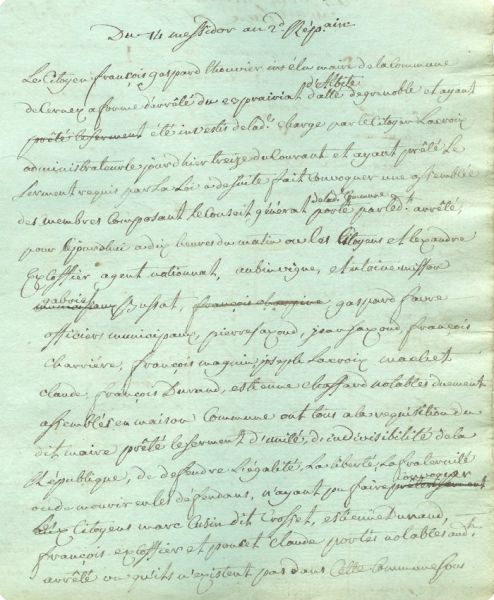 Du 14 messidor an 2d Rép.aire
Le Citoyen françois gaspard thouvier ins élu maire de la commune
de Cernex a forme d'arrêté du 29 prairial d'Albite datté de grenoble et ayant
prêté le serment été investi de lad.e charge par le Citoyen Lacroix
administrateur le jourd'hier treize du Courant et ayant prêté Le
serment requis par La Loi a de suite fait Convoquer une assemblée
des membres Composant le Conseil général de lad.e Commune porté par led.t arrêté,
pour le jourdhui a dix heures du matin ou les Citoyens alexandre
Excoffier agent nationnal, aubin vigne, et antoine
municipaux gabriel Bussat, françois champine gaspard favre
officiers municipaux, pierre saxoud, jean saxoud, françois
charriére, françois magnin, joseph Lacroix machet
claude, françois Durand, estienne Chaffard notables duement
assemblés en maison Commune ont tous a la requisition du
dit maire prêté le serment d'unité, d'indivisibilité de la
République, de deffendre L'égalité, La liberté, La fraternité
ou de mourir en les deffendans, n'ayant pu faire convoquer
Les Citoyens marc Cusin dit Crosset, estienne Durand,
françois excoffier et poncet claude portés notables aud.t
arrêté ou qu'ils n'existent pas dans Cette Commune sous